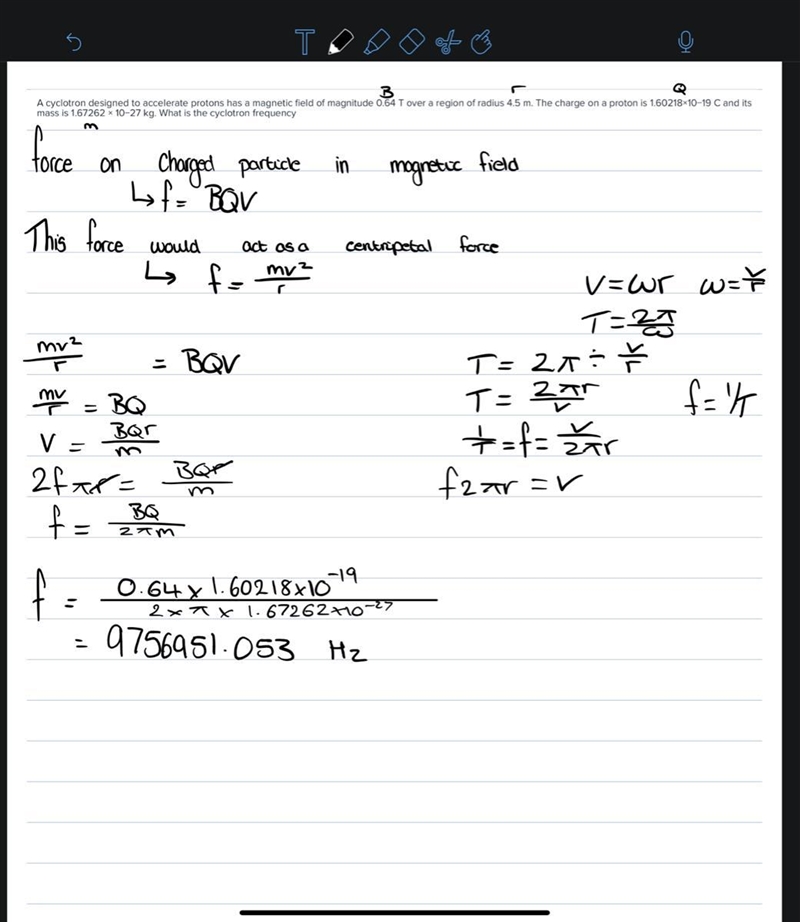 B r Q
A cyclotron designed to accelerate protons has a magnetic field of magnitude 0.64 T over a region of radius 4.5 m. The charge on a proton is 1.60218×10−19 C and its
mass is 1.67262 × 10−27 kg. What is the cyclotron frequency
m
force on charged particle in magnetic field
↳ f = BQV
This force would act as a centripetal force
↳ f = mv²/r
V = ωr ω = v/r
T = 2π/ω
mv²/r = BQV
T = 2π ÷ v/r
mv/r = BQ
T = 2πr/v
f = 1/T
V = BQr/m
1/T = f = v/2πr
2fπr = BQr/m
f2πr = v
f = BQ/2πm
f = 0.64 × 1.60218×10⁻¹⁹ / 2 × π × 1.67262×10⁻²⁷
= 9756951.053 Hz